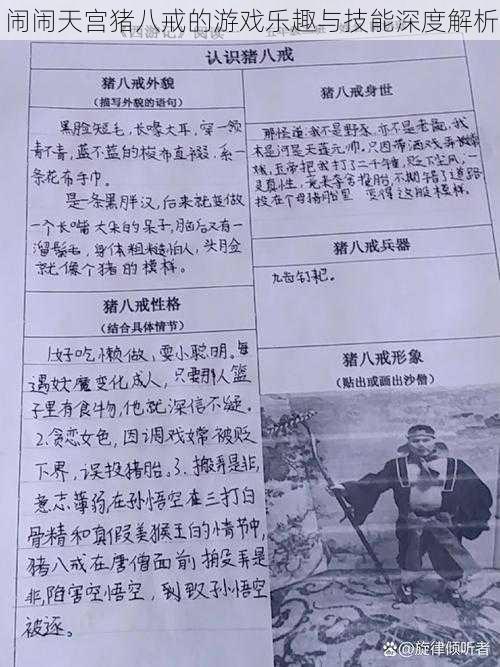 闹闹天宫猪八戒的游戏乐趣与技能深度解析
认识猪八戒
猪八戒外貌
（描写外貌的语句）
黑脸短毛，长喙大耳，穿一领
青不青，蓝不蓝的梭布直裰，系一
条花布手巾。
是一条黑胖汉，后来就变做
一个长嘴大朵的呆子，脑后又有一
溜鬃毛，身体粗糙怕人，头脸
就像个猪的模样。
猪八戒性格
（结合具体情节）
1.好吃懒做，耍小聪明。每
遇妖魔变化成人，只要那人篮
子里有食物，他就深信不疑。
2.贪恋女色，因调戏嫦被贬
下界，误投猪胎。3.搬弄是非，
意志薄弱，在孙悟空在三打白
骨精和真假美猴王的情节中，
猪八戒在唐僧面前搬弄是
非，陷害空悟空，到致孙悟空
被逐。
猪八戒身世
那怪道：我不是野豕，亦不是老彘，我
本是河是天蓬元帅，只因带酒戏弄嫦
娥，玉帝把我打了二千锤，贬下尘凡，一
灵真性，竟来夺舍投胎，不期错了道路
投在个母猪胎里 变得这般模样。
猪八戒兵器
九齿钉耙。
猪八戒形象
（贴出或画出沙僧）
@旋律倾听者